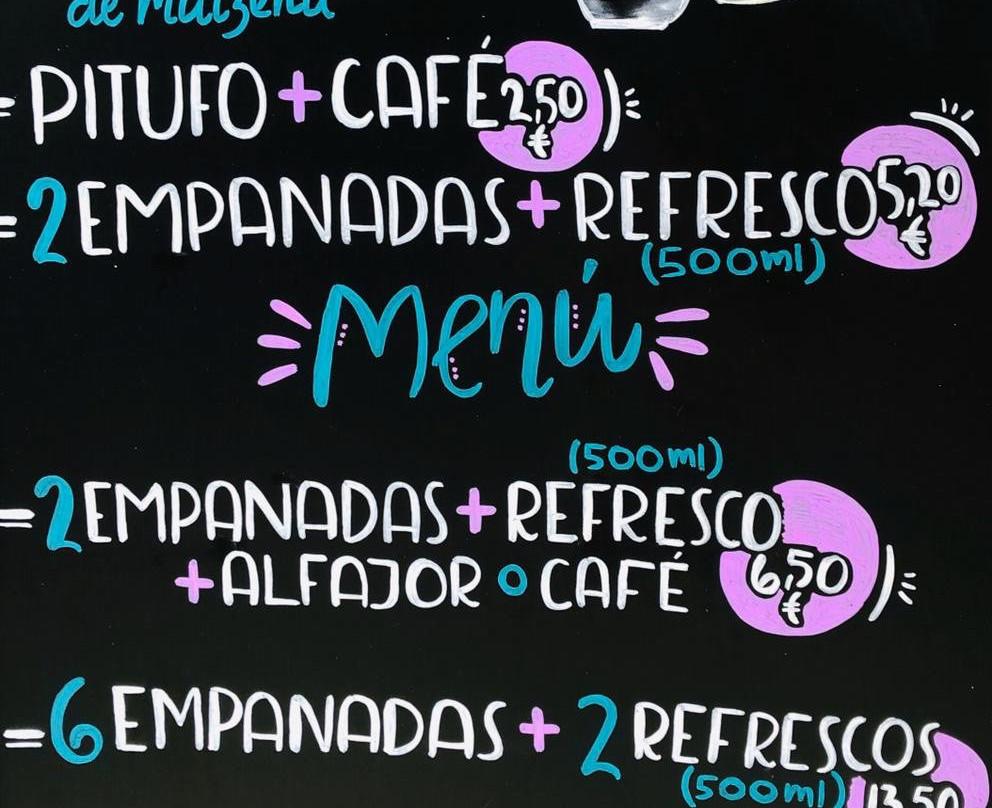 de Maizena
= PITUFO + CAFÉ 2,50 €
= 2 EMPANADAS + REFRESCO 5,20 €
(500ml)
Menú
(500ml)
= 2 EMPANADAS + REFRESCO
+ ALFAJOR o CAFÉ 6,50 €
= 6 EMPANADAS + 2 REFRESCOS
(500ml) 13,50